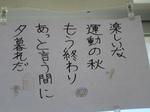 楽しいな
運動の秋
もう終わり
あっと言う間に
夕暮れだ